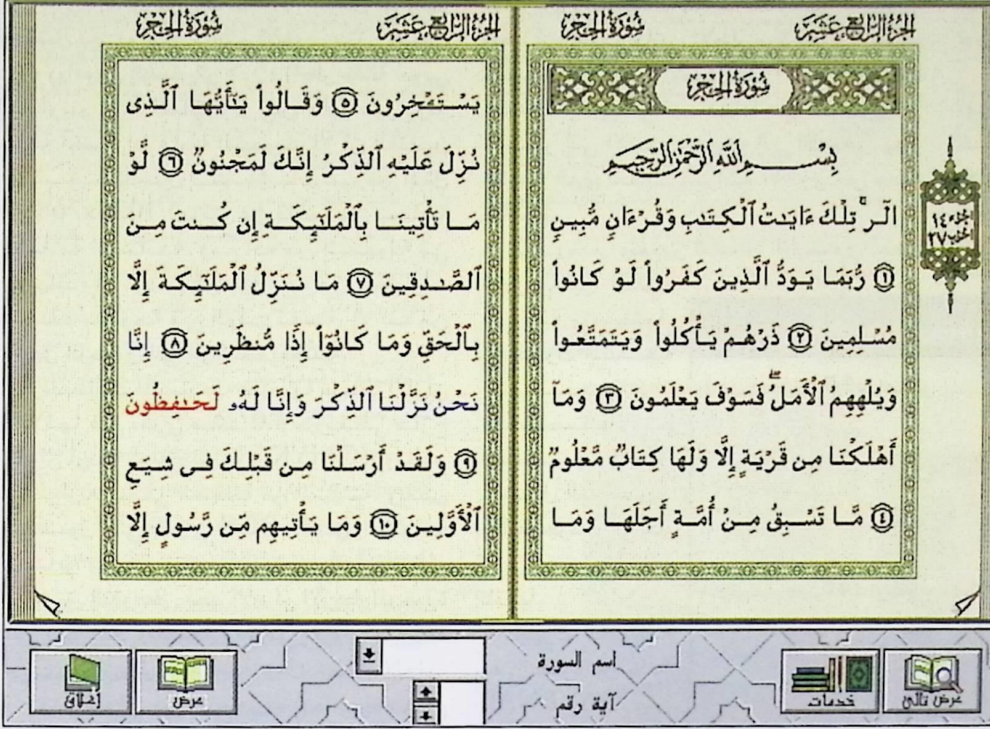 الجزء الرابع عشر
سورة الحجر
سورة الحجر
بِسْمِ اللَّهِ الرَّحْمَٰنِ الرَّحِيمِ
الٓر ۚ تِلْكَ ءَايَٰتُ ٱلْكِتَٰبِ وَقُرْءَانٍ مُّبِينٍ
۝١ رُّبَمَا يَوَدُّ ٱلَّذِينَ كَفَرُوا۟ لَوْ كَانُوا۟
مُسْلِمِينَ ۝٢ ذَرْهُمْ يَأْكُلُوا۟ وَيَتَمَتَّعُوا۟
وَيُلْهِهِمُ ٱلْأَمَلُ ۖ فَسَوْفَ يَعْلَمُونَ ۝٣ وَمَآ
أَهْلَكْنَا مِن قَرْيَةٍ إِلَّا وَلَهَا كِتَابٌ مَّعْلُومٌ
۝٤ مَّا تَسْبِقُ مِنْ أُمَّةٍ أَجَلَهَا وَمَا
الجزء ١٤
الحزب ٢٧
الجزء الرابع عشر
سورة الحجر
يَسْتَـْٔخِرُونَ ۝٥ وَقَالُوا۟ يَٰٓأَيُّهَا ٱلَّذِى
نُزِّلَ عَلَيْهِ ٱلذِّكْرُ إِنَّكَ لَمَجْنُونٌ ۝٦ لَّوْ
مَا تَأْتِينَا بِٱلْمَلَٰٓئِكَةِ إِن كُنتَ مِنَ
ٱلصَّٰدِقِينَ ۝٧ مَا نُنَزِّلُ ٱلْمَلَٰٓئِكَةَ إِلَّا
بِٱلْحَقِّ وَمَا كَانُوٓا۟ إِذًا مُّنظَرِينَ ۝٨ إِنَّا
نَحْنُ نَزَّلْنَا ٱلذِّكْرَ وَإِنَّا لَهُۥ لَحَٰفِظُونَ
۝٩ وَلَقَدْ أَرْسَلْنَا مِن قَبْلِكَ فِى شِيَعِ
ٱلْأَوَّلِينَ ۝١٠ وَمَا يَأْتِيهِم مِّن رَّسُولٍ إِلَّا
عرض تالى
خدمات
اسم السورة
آية رقم
عرض
إغلاق